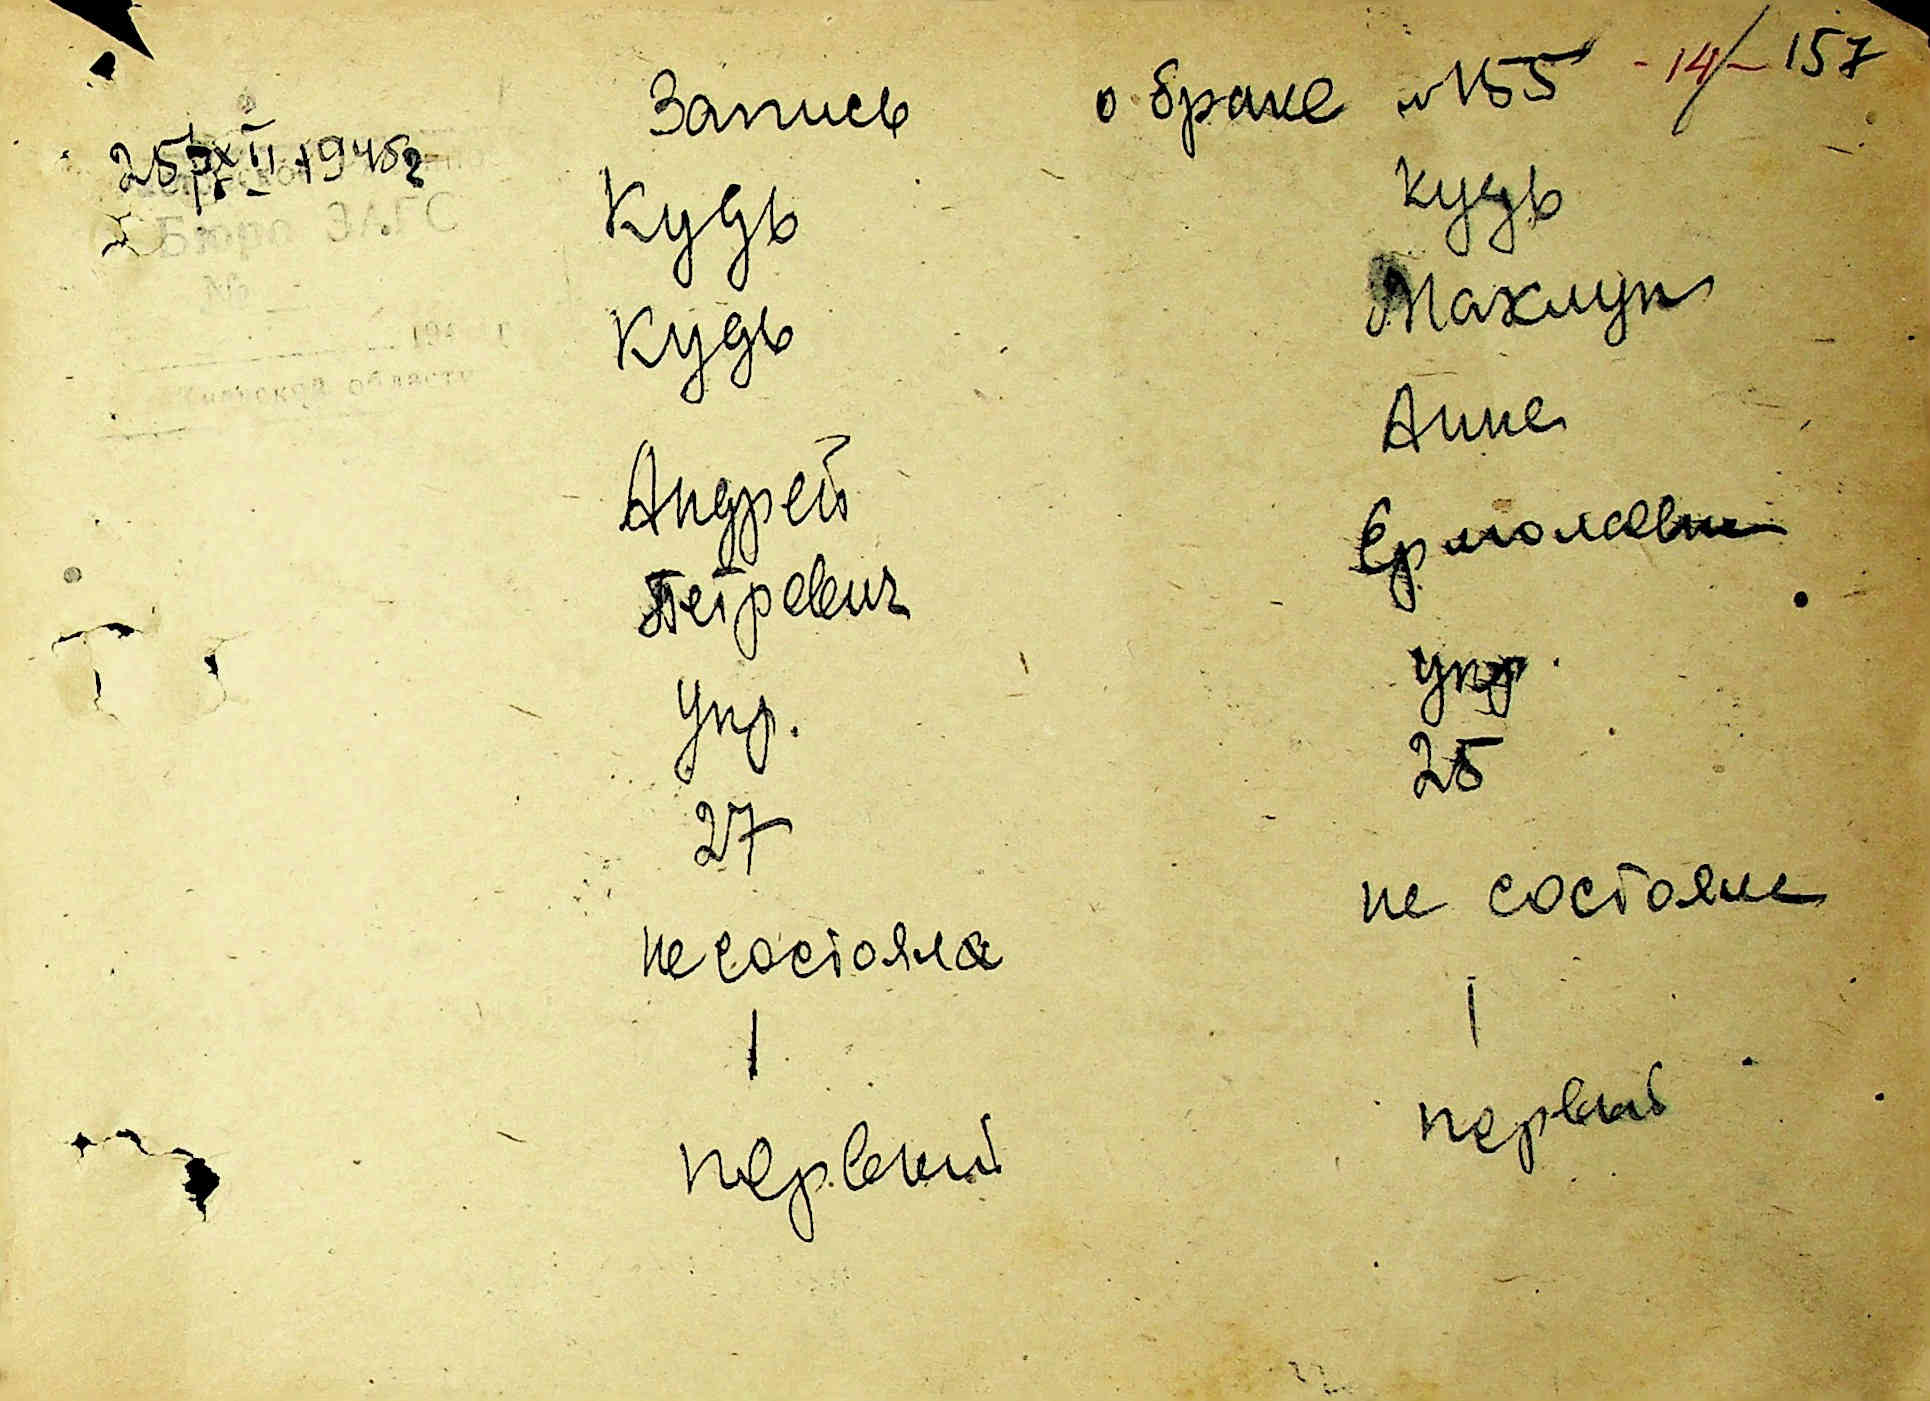 Запись о браке №155 -14/- 157
25/XII 1945г
Бюро ЗАГС
№
194 г.
Киевской области
Кудь Кудь
Кудь Махлун
Андрей Анна
Петрович Ермолаевна
укр. укр.
27 25
не состояла не состояла
1 1
первый первый